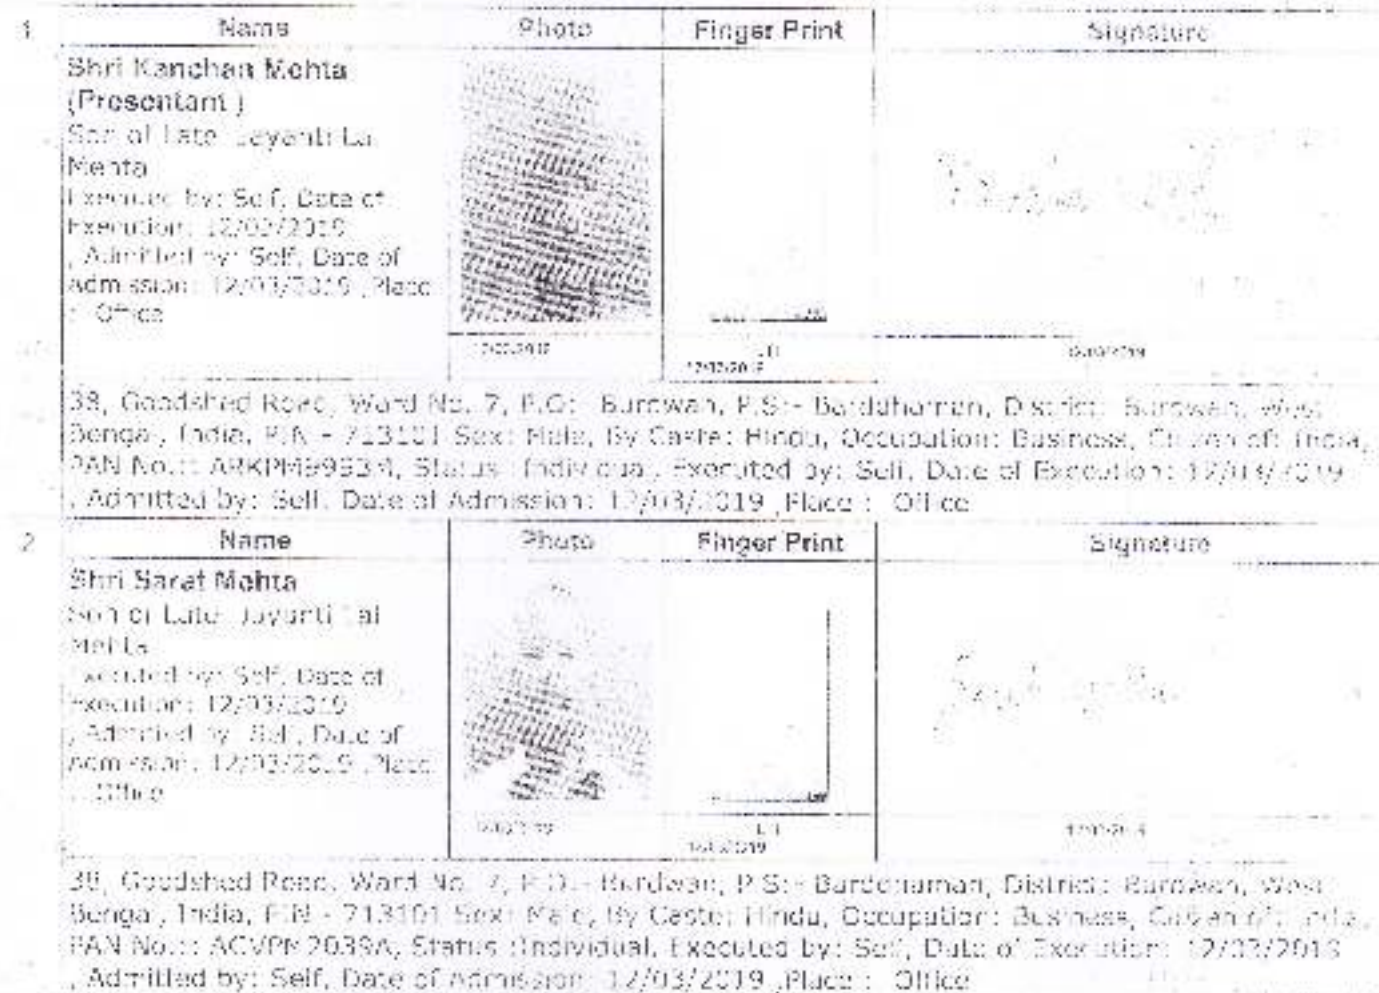 1 Name Photo Finger Print Signature
Shri Kanchan Mehta
(Presentant )
Son of Late Jayanti Lal
Mehta
Executed by: Self, Date of
Execution: 12/03/2019
, Admitted by: Self, Date of
Admission: 12/03/2019 ,Place
: Office
12/03/2019 LTI 12/03/2019
12/03/2019
38, Goodshed Road, Ward No. 7, P.O:- Burdwan, P.S:- Barddhaman, District:- Burdwan, West
Bengal, India, PIN - 713101 Sex: Male, By Caste: Hindu, Occupation: Business, Citizen of: India,
PAN No.:: Status :Individual, Executed by: Self, Date of Execution: 12/03/2019
, Admitted by: Self, Date of Admission: 12/03/2019 ,Place : Office
2 Name Photo Finger Print Signature
Shri Sarat Mehta
Son of Late Jayanti Lal
Mehta
Executed by: Self, Date of
Execution: 12/03/2019
, Admitted by: Self, Date of
Admission: 12/03/2019 ,Place
: Office
12/03/2019 LTI 12/03/2019
12/03/2019
38, Goodshed Road, Ward No. 7, P.O:- Burdwan, P.S:- Barddhaman, District:- Burdwan, West
Bengal, India, PIN - 713101 Sex: Male, By Caste: Hindu, Occupation: Business, Citizen of: India,
PAN No.:: ACVPM2039A, Status :Individual, Executed by: Self, Date of Execution: 12/03/2019
, Admitted by: Self, Date of Admission: 12/03/2019 ,Place : Office